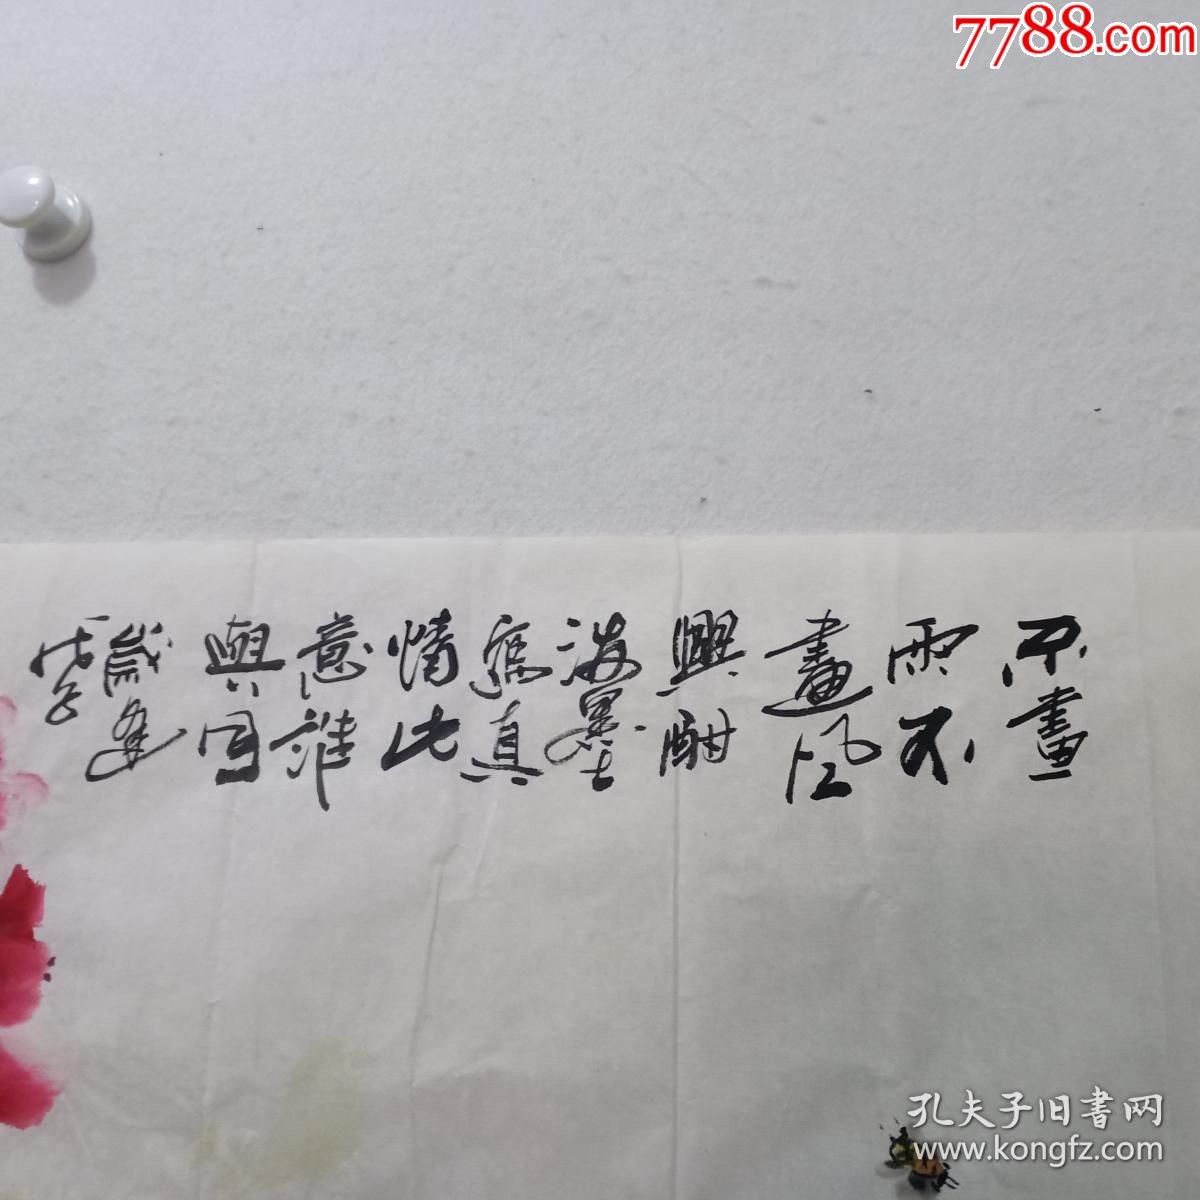 7788.com
不畫
雨不
畫風
興酣
潑墨
寫真
情此
意誰
與同
歲逢
戊子
孔夫子旧書网
www.kongfz.com